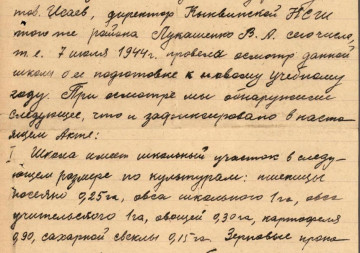 тов. Исаев, директор Кыквинской НСШ
того же района Лукашенко В. А. сего числа,
т. е. 7 июля 1944г. провели осмотр данной
школы о ее подготовке к новому учебному
году. При осмотре мы обнаружили
следующее, что и зафиксировано в насто-
ящем Акте:
I. Школа имеет школьный участок в следу-
ющем размере по культурам: пшеницы
посеяно 0,25га, овса школьного 1га, овса
учительского 1га, овощей 0,30га, картофеля
0,90, сахарной свеклы 0,15га. Зерновые